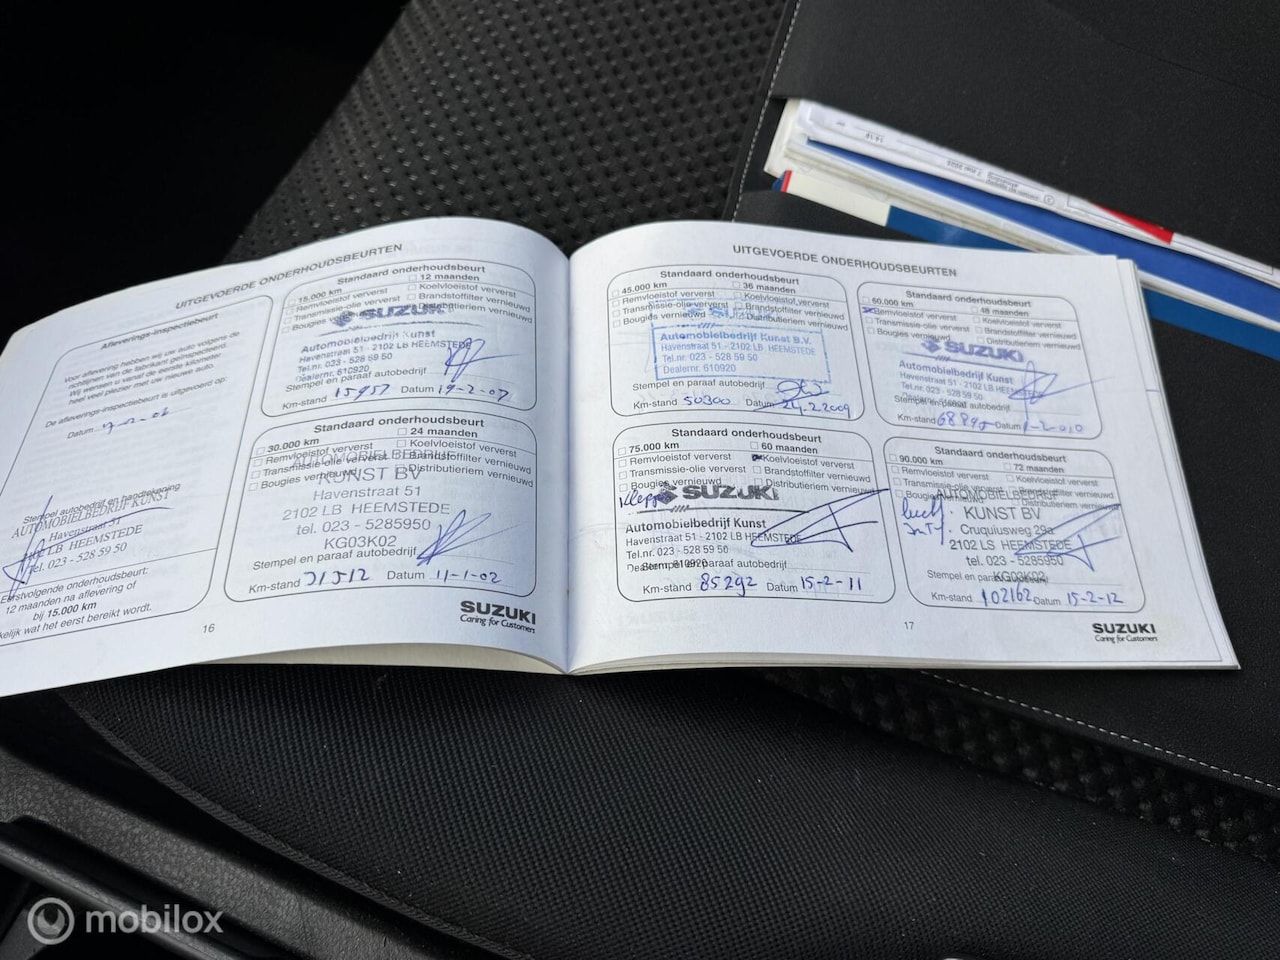 UITGEVOERDE ONDERHOUDSBEURTEN
Afleverings-inspectiebeurt
Voor aflevering hebben wij uw auto volgens de
richtlijnen van de fabrikant geïnspecteerd.
Wij wensen u vanaf de eerste kilometer
heel veel plezier met uw nieuwe auto.
De afleverings-inspectiebeurt is uitgevoerd op:
Datum
Stempel autobedrijf en handtekening
AUTOMOBIELBEDRIJF KUNST
Havenstraat 51
2102 LB HEEMSTEDE
Tel. 023 - 528 59 50
Eerstvolgende onderhoudsbeurt:
12 maanden na aflevering of
bij 15.000 km
Standaard onderhoudsbeurt
15.000 km 12 maanden
Remvloeistof ververst Koelvloeistof ververst
Transmissie-olie ververst Brandstoffilter vernieuwd
Bougies
SUZUKI
Automobielbedrijf Kunst
Havenstraat 51 - 2102 LB HEEMSTEDE
Tel.nr. 023 - 528 59 50
Dealernr. 610920
Stempel en paraaf autobedrijf
Km-stand 15957 Datum 19-2-07
Standaard onderhoudsbeurt
30.000 km 24 maanden
Remvloeistof ververst Koelvloeistof ververst
Transmissie-olie ververst Brandstoffilter vernieuwd
Bougies vernieuwd Distributieriem vernieuwd
AUTOMOBIELBEDRIJF
KUNST BV
Havenstraat 51
2102 LB HEEMSTEDE
tel. 023 - 5285950
KG03K02
Stempel en paraaf autobedrijf
Km-stand 31512 Datum 11-1-02
16
SUZUKI
Caring for Customers
UITGEVOERDE ONDERHOUDSBEURTEN
Standaard onderhoudsbeurt
45.000 km 36 maanden
Remvloeistof ververst Koelvloeistof ververst
Transmissie-olie ververst Brandstoffilter vernieuwd
Bougies vernieuwd Distributieriem vernieuwd
Automobielbedrijf Kunst B.V.
Havenstraat 51 - 2102 LB HEEMSTEDE
Tel.nr. 023 - 528 59 50
Dealernr. 610920
Stempel en paraaf autobedrijf
Km-stand 50300 Datum 24.2.2009
Standaard onderhoudsbeurt
60.000 km 48 maanden
Remvloeistof ververst Koelvloeistof ververst
Transmissie-olie ververst Brandstoffilter vernieuwd
Bougies vernieuwd Distributieriem vernieuwd
SUZUKI
Automobielbedrijf Kunst
Havenstraat 51 - 2102 LB HEEMSTEDE
Tel.nr. 023 - 528 59 50
Stempel en paraaf autobedrijf
Km-stand Datum
Standaard onderhoudsbeurt
75.000 km 60 maanden
Remvloeistof ververst Koelvloeistof ververst
Transmissie-olie ververst Brandstoffilter vernieuwd
Bougies vernieuwd Distributieriem vernieuwd
SUZUKI
Automobielbedrijf Kunst
Havenstraat 51 - 2102 LB HEEMSTEDE
Tel.nr. 023 - 528 59 50
Dealernr. 610920
Km-stand 85292 Datum 15-2-11
Standaard onderhoudsbeurt
90.000 km 72 maanden
Remvloeistof ververst Koelvloeistof ververst
Transmissie-olie ververst Brandstoffilter vernieuwd
Bougies vernieuwd Distributieriem vernieuwd
AUTOMOBIELBEDRIJF
KUNST BV
Cruquiusweg 29a
2102 LS HEEMSTEDE
tel. 023 - 5285950
KG03K02
Km-stand 102162 Datum 15-2-12
17
SUZUKI
Caring for Customers
mobilox